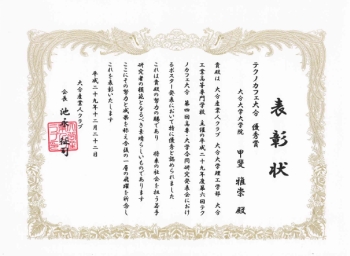 表彰状
テクノカフェ大分 優秀賞
大分大学大学院
甲斐 雅崇 殿
貴殿は 大分産業人クラブ 大分大学理工学部 大分
工業高等専門学校 主催の平成二十九年度第六回テク
ノカフェ大分 第四回高専・大学合同研究発表会におけ
るポスター発表において特に優秀と認められました
これは貴殿の努力の賜であり 将来の社会を担う若手
研究者の模範となるべき素晴らしいものであります
ここにその努力と成果を称え今後の一層の飛躍を祈念し
これを表彰いたします
平成二十九年十二月二十二日
大分産業人クラブ
会長